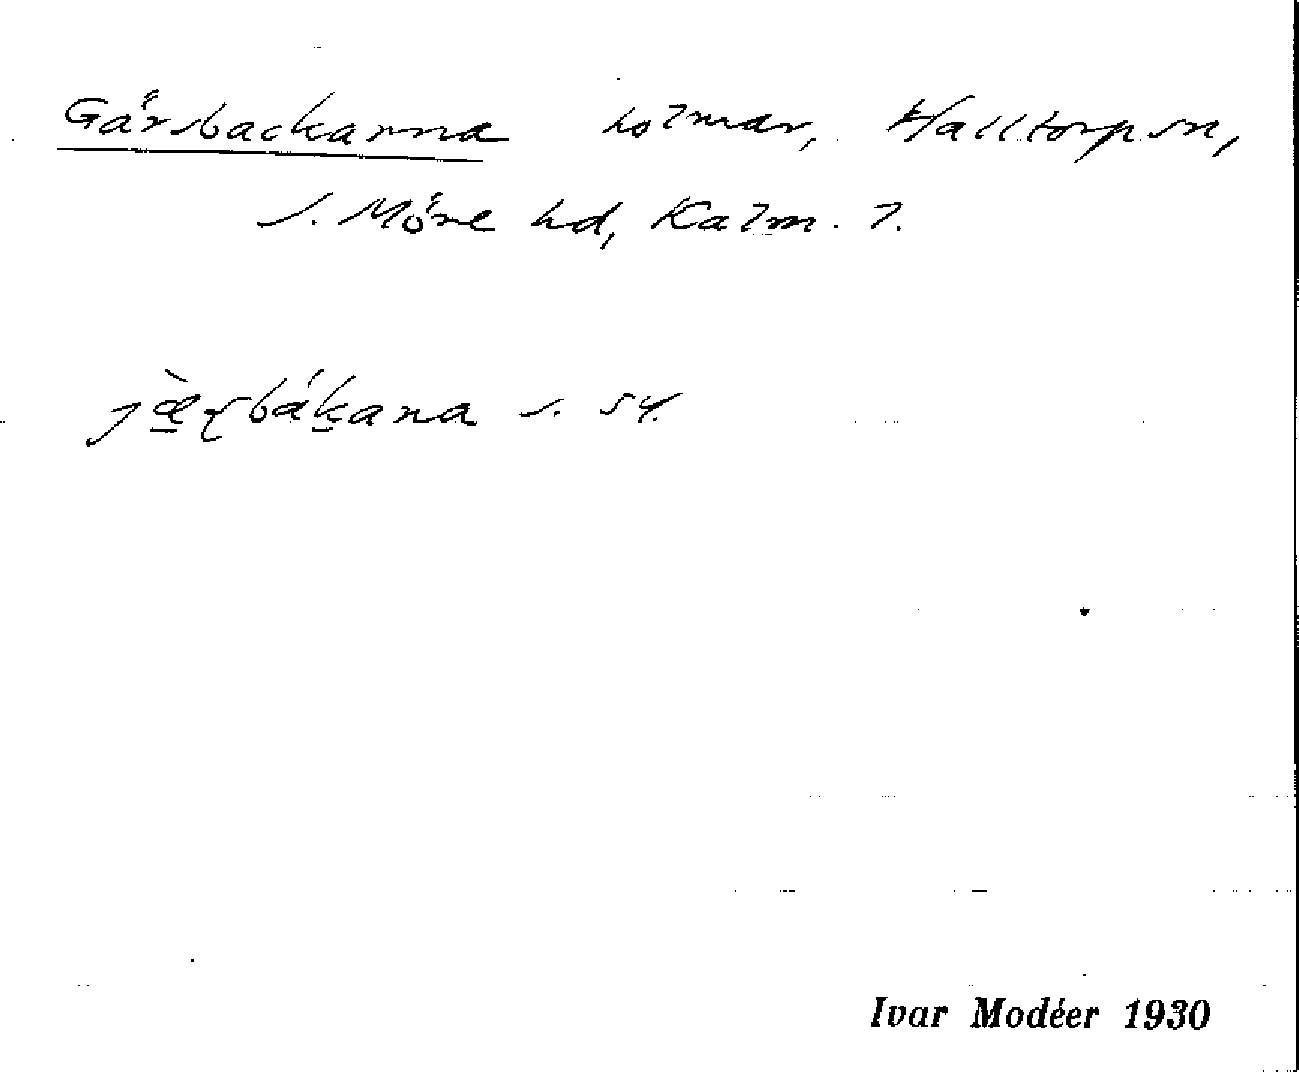 Gärsbackarna holmar, Halltorp sn,
S. Möre hd, Kalm. l.
jæ̀ʂbákana s. 54.
Ivar Modéer 1930